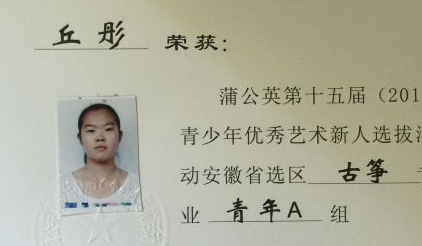 丘彤 荣获：
蒲公英第十五届（201
青少年优秀艺术新人选拔
动安徽省选区 古筝
业 青年A 组